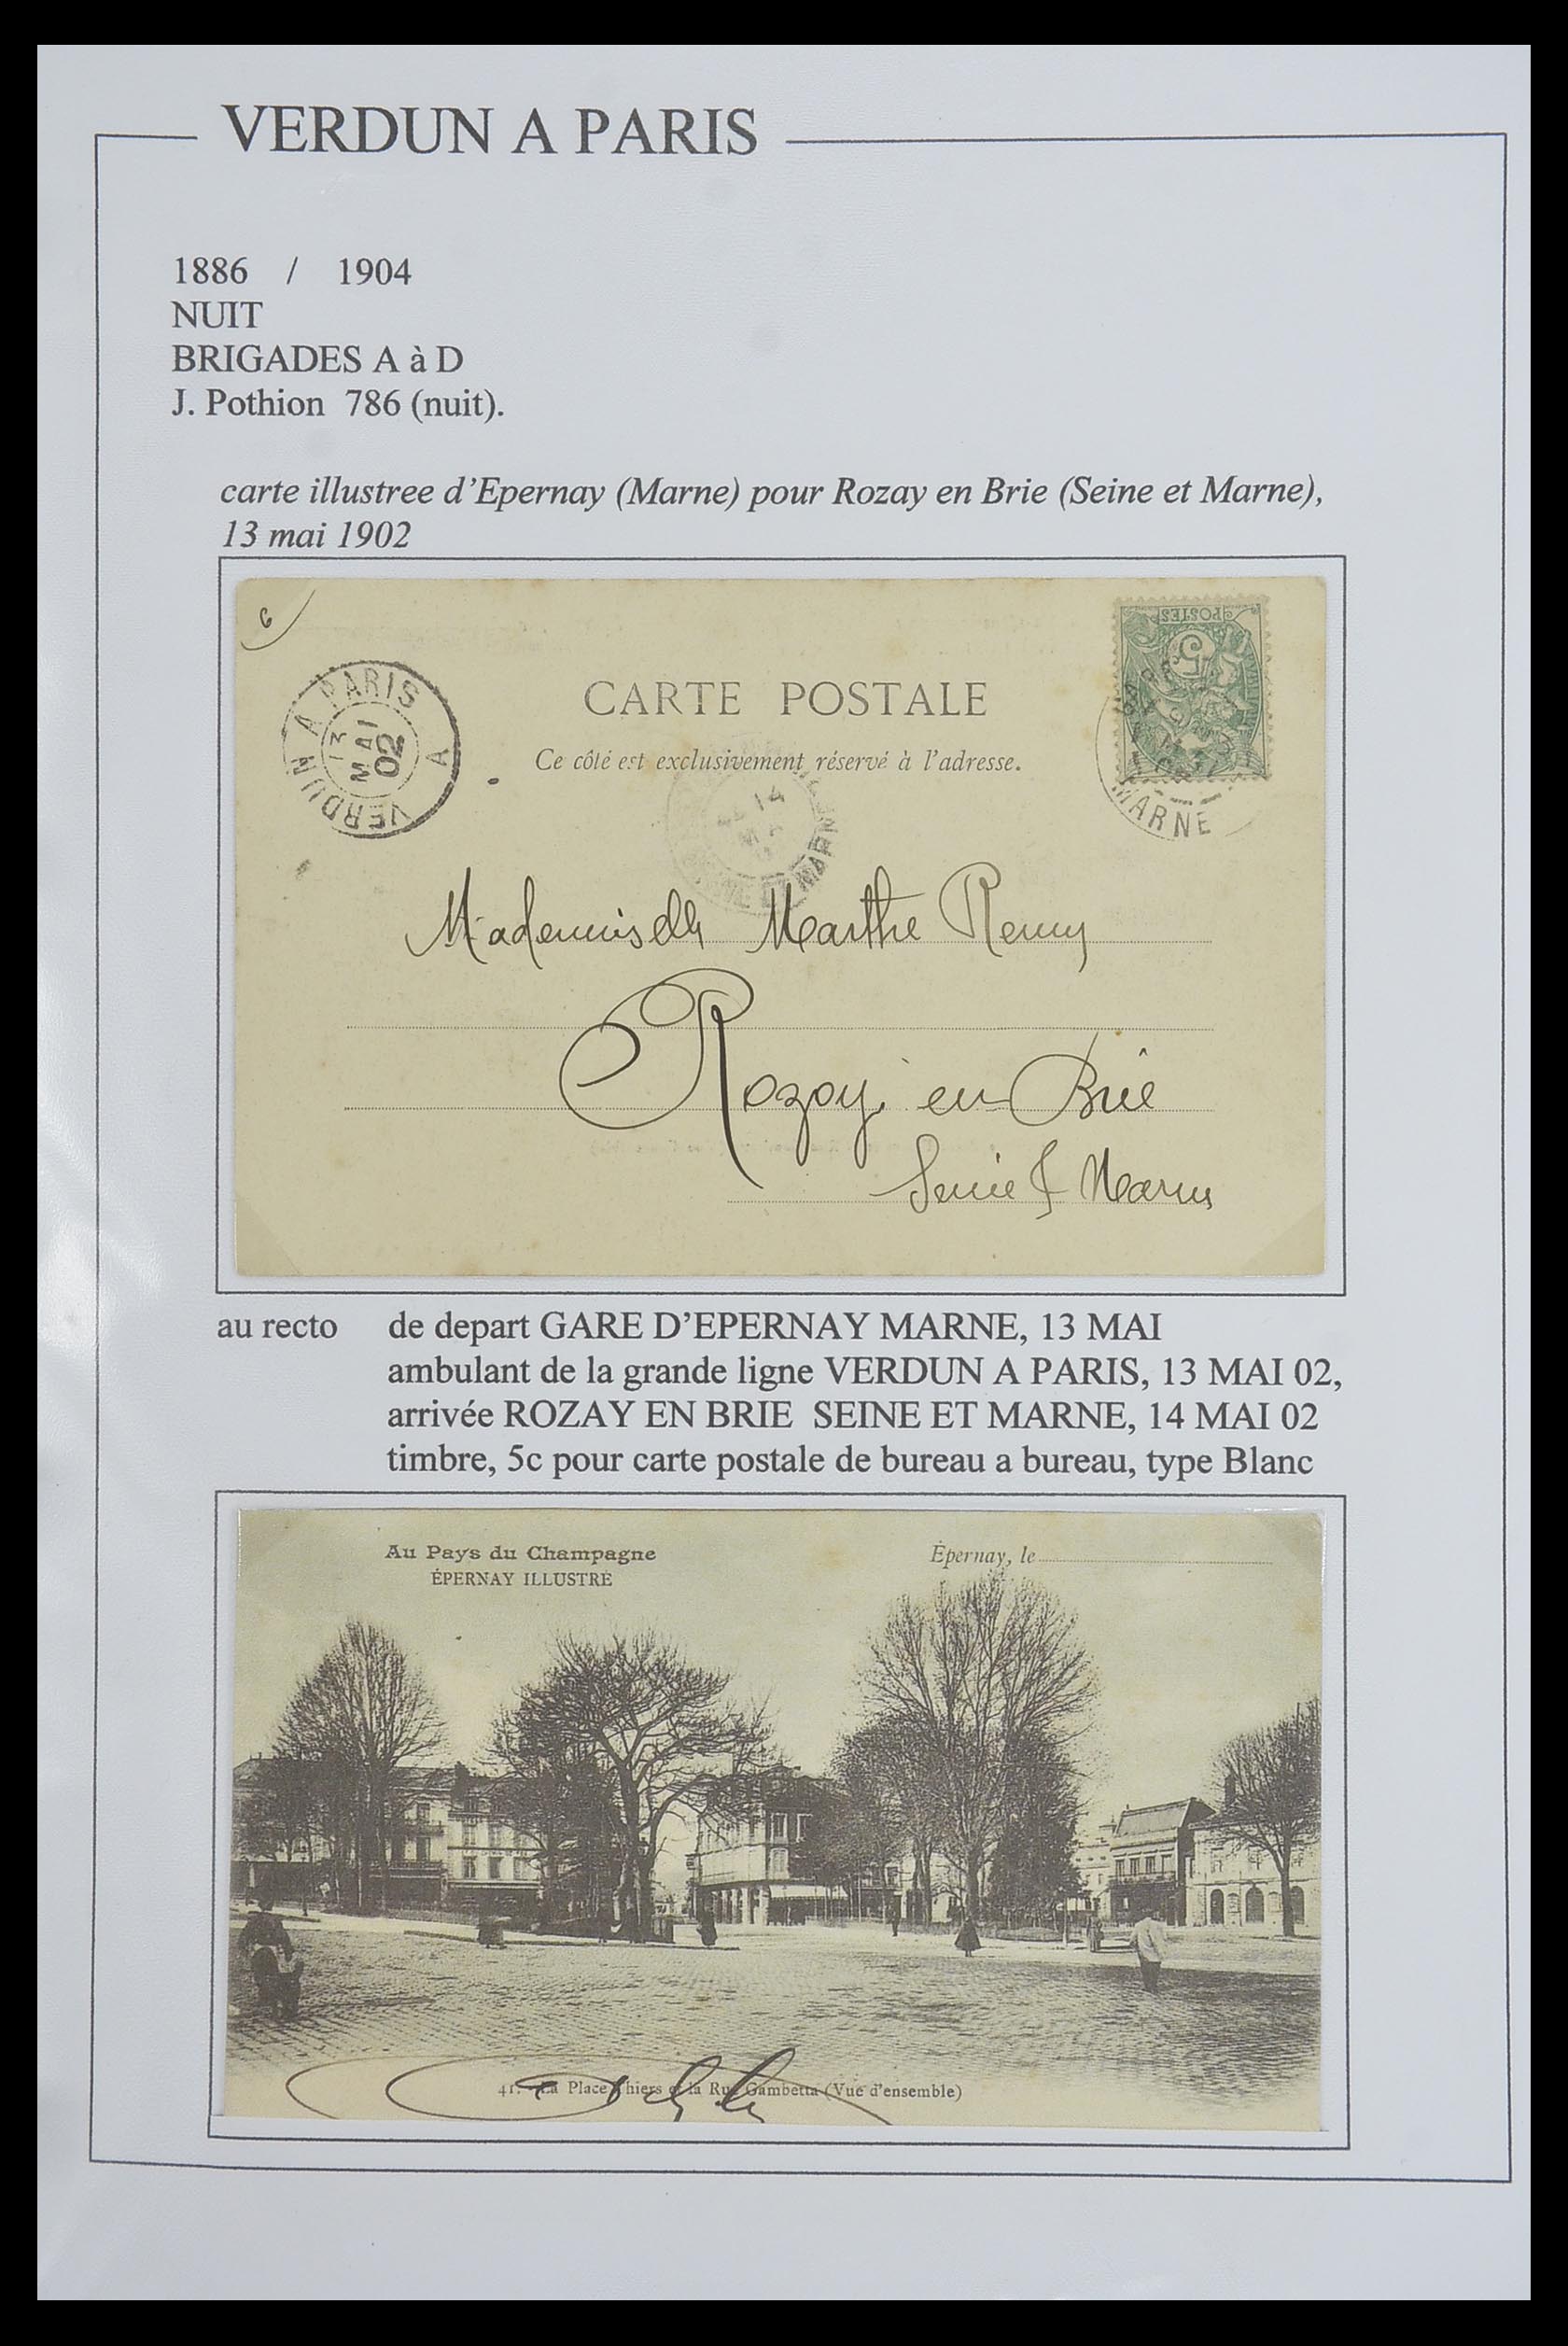 VERDUN A PARIS
1886 / 1904
NUIT
BRIGADES A à D
J. Pothion 786 (nuit).
carte illustree d'Epernay (Marne) pour Rozay en Brie (Seine et Marne),
13 mai 1902
6
VERDUN A PARIS
13
MAI
02
A
POSTES
5
CARTE POSTALE
Ce côté est exclusivement réservé à l'adresse.
MARNE
14
MARNE
Mademoiselle Marthe Remy
Rozoy en Brie
Seine & Marne
au recto de depart GARE D'EPERNAY MARNE, 13 MAI
ambulant de la grande ligne VERDUN A PARIS, 13 MAI 02,
arrivée ROZAY EN BRIE SEINE ET MARNE, 14 MAI 02
timbre, 5c pour carte postale de bureau a bureau, type Blanc
Au Pays du Champagne
ÉPERNAY ILLUSTRÉ
Épernay, le
41. - La Place Thiers et la Rue Gambetta (Vue d'ensemble)